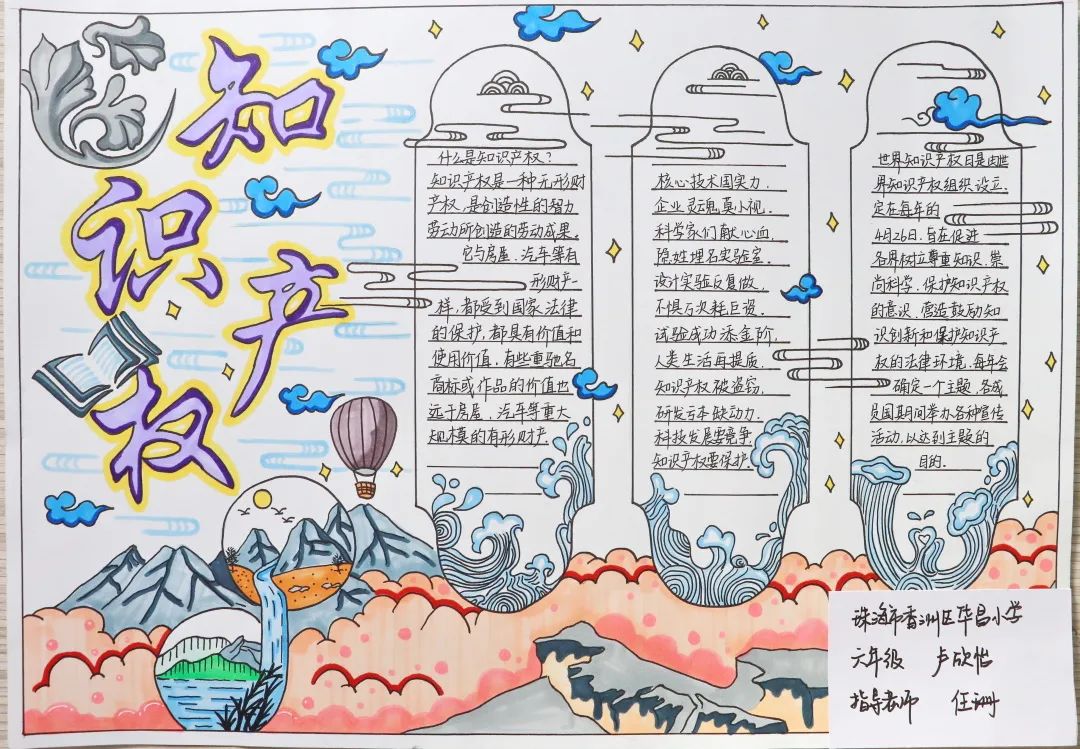 知识产权
什么是知识产权？
知识产权是一种无形财
产权，是创造性的智力
劳动所创造的劳动成果。
它与房屋、汽车等有
形财产一
样，都受到国家法律
的保护，都具有价值和
使用价值。有些重驰名
商标或作品的价值也
远于房屋、汽车等重大
规模的有形财产。
核心技术国实力，
企业灵魂莫小视。
科学家们献心血，
隐姓埋名实验室。
设计实验反复做，
不惧亏决耗巨资。
试验成功添金阶，
人类生活再提质。
知识产权被盗窃，
研发亏本缺动力。
科技发展要竞争，
知识产权要保护。
世界知识产权日是由世
界知识产权组织设立，
定在每年的
4月26日，旨在促进
各界树立尊重知识、崇
尚科学、保护知识产权
的意识，营造鼓励知
识创新和保护知识产
权的法律环境，每年会
确定一个主题，各成
员国期间举办各种宣传
活动，以达到主题的
目的。
珠海市香洲区华昌小学
六年级 卢欣怡
指导老师 任珊